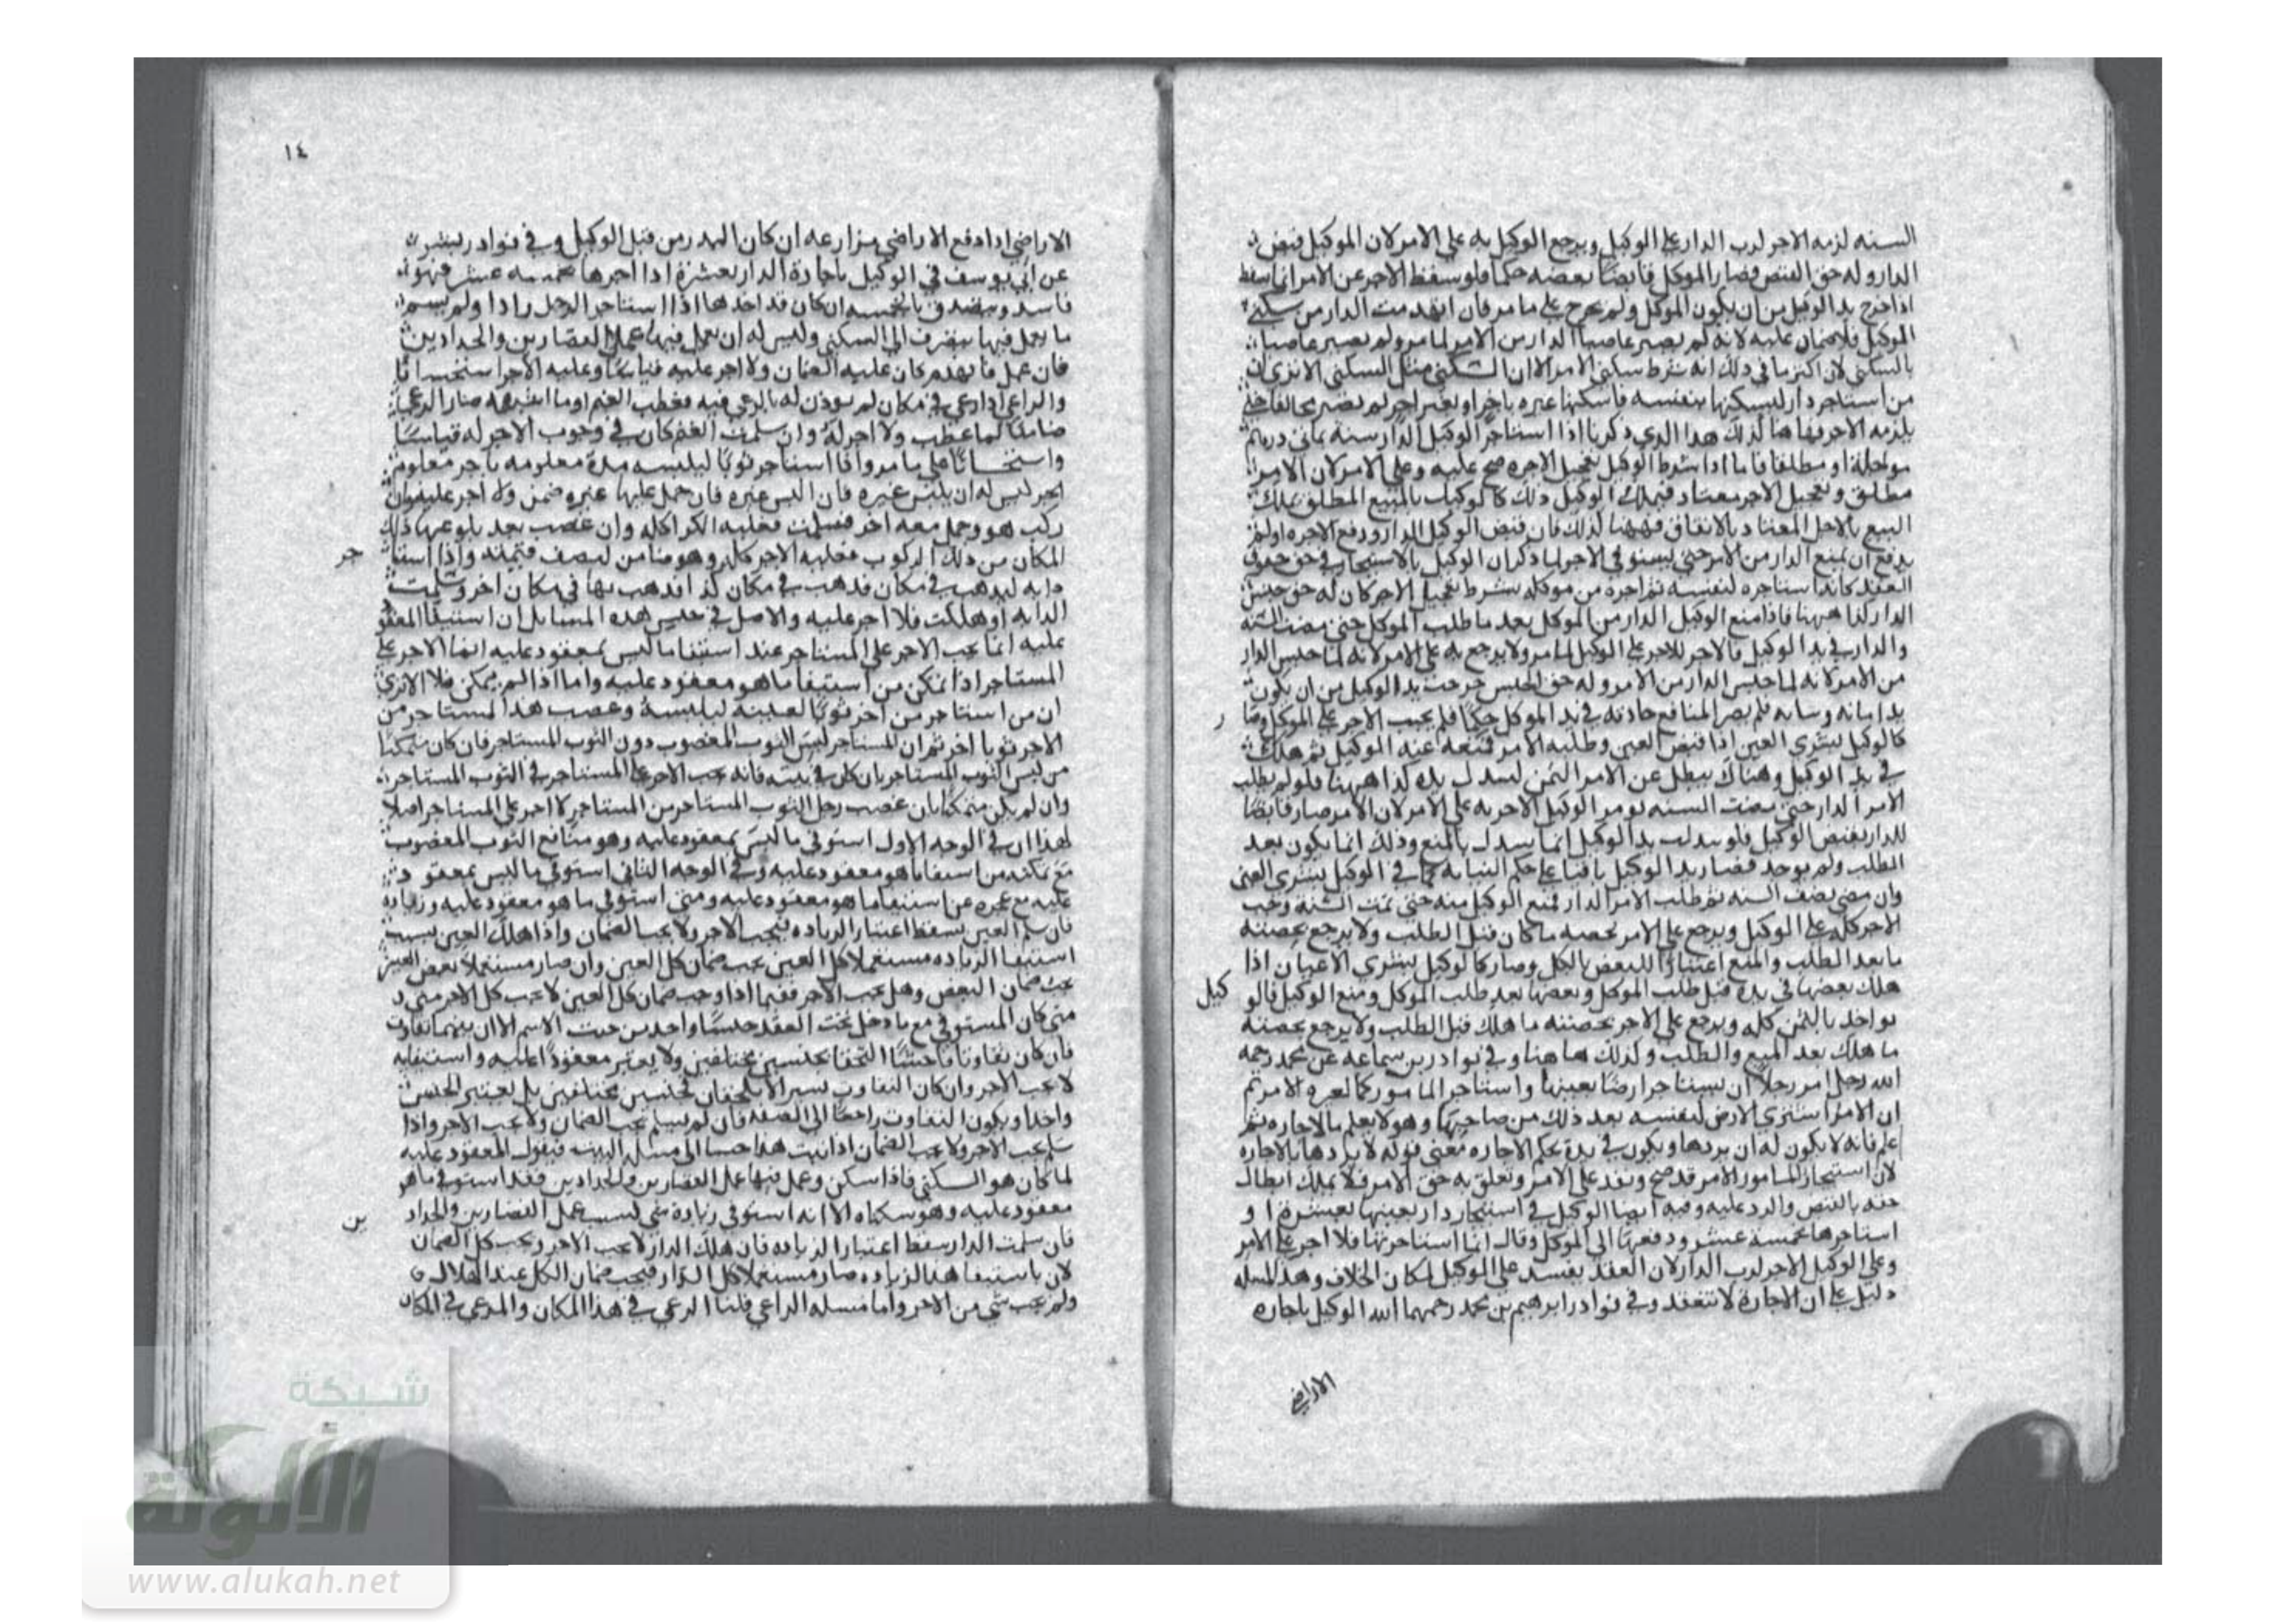 السنه لزمه الاجر لرب الدار على الوكيل ويرجع الوكيل به على الامر لان الموكيل قبض
الدار وله حق القبض فصار الموكل قابضا بعضه حكما فلو سقط الاجر عن الامر انما سقط
اذا خرج يد الوكيل من ان يكون الموكل ولم يخرج على ما مر فان انهدمت الدار من سكنى
الوكيل فلا ضمان عليه لانه لم يصر غاصبا الدار من الامر لما مر ولم يصير غاصبا
بالسكنى لان اكثر ما فى ذلك انه شرط سكنى الامر الا ان السكنى مثل السكنى الا ترى ان
من استاجر دار ليسكنها بنفسه فاسكنها غيره باجر او بغير اجر لم يصر مخالفا حتى
يلزمه الاجر فها هنا كذلك هذا الذي ذكرنا اذا استاجر الوكيل الدار سنه بمائتى درهم
مؤجلة او مطلقا فاما اذا شرط الوكيل تعجيل الاجره صح عليه وعلى الامر لان الامر
مطلق وتعجيل الاجر معتاد فيملك الوكيل ذلك كالوكيل بالبيع المطلق يملك
البيع بالاجل المعتاد بالاتفاق فههنا كذلك فان قبض الوكيل الدار ودفع الاجره او لم
يدفع ان يمنع الدار من الامر حتى يستوفى الاجر لما ذكر ان الوكيل بالاستيجار فى حق حقوق
العقد كانه استاجره لنفسه ثم اجره من موكله بشرط تعجيل الاجر كان له حق حبس
الدار كذا ههنا فاذا منع الوكيل الدار من الموكل بعد ما طلب الموكل حتى مضت السنه
والدار في يد الوكيل فالاجر للاجر على الوكيل لما مر ولا يرجع به على الامر لانه لما حبس الدار
من الامر لانه لما حبس الدار من الامر وله حق الحبس خرجت يد الوكيل من ان يكون
يد امانه ونيابه فلم يصر المنافع حادثه في يد الموكل حكما فلم يجب الاجر على الموكل وصا
ر
كالوكيل بشرى العين اذا قبض العين وطلبه الامر فمنعه عنه الوكيل ثم هلك
في يد الوكيل وهناك يبطل عن الامر الثمن لتبدل يده كذا ههنا فلو لم يطلب
الامر الدار حتى مضت السنه يومر الوكيل الاجر به على الامر لان الامر صار قابضا
للدار بقبض الوكيل فلو تبدلت يد الوكيل انما تبدل بالمنع وذلك انما يكون بعد
الطلب ولم يوجد فصار يد الوكيل باقيا على حكم النيابه كما في الوكيل بشرى العين
وان مضى نصف السنه ثم طلب الامر الدار فمنع الوكيل منه حتى تمت السنة وجب
الاجر كله على الوكيل ويرجع على الامر بحصه ما كان قبل الطلب ولا يرجع بحصته
ما بعد الطلب والمنع اعتبارا للبعض بالكل وصار كالوكيل بشرى الاعيان اذا
هلك بعضها في يده قبل طلب الموكل وبعضها بعد طلب الموكل ومنع الوكيل فالو
كيل
يواخذ بالثمن كله ويرجع على الاجر بحصته ما هلك قبل الطلب ولا يرجع بحصته
ما هلك بعد المنع والطلب وكذلك هاهنا وفي نوادر بن سماعه عن محمد رحمه
الله رجل امر رجلا ان يستاجر ارضا بعينها واستاجر المامور كما لعره الامر ثم
ان الامر اشترى الارض لنفسه بعد ذلك من صاحبها وهو لا يعلم بالاجاره ثم
علم فانه لا يكون له ان يردها ويكون في يده بحكم الاجاره معنى قوله لا يردها بالاجاره
لان استيجار المامور الامر قد صح ونفذ على الامر وتعلق به حق الامر فلا يملك ابطال
حقه بالقبض والرد عليه وفيه ايضا الوكيل في استيجار دار بعينها بعشرة ا و
استاجرها بخمسة عشر ودفعها الى الموكل وقال انما استاجرتها فلا اجر على الامر
وعلى الوكيل الاجر لرب الدار لان العقد يفسد على الموكيل لمكان الخلاف وهذ المسله
دليل على ان الاجارة لا تنعقد وفي نوادر ابرهيم بن محمد رحمهما الله الوكيل باجاره
الاراضي
١٤
الاراضي اذا دفع الاراضي مزارعه ان كان البدر من قبل الوكيل وفي نوادر بشر
عن ابي يوسف في الوكيل باجارة الدار بعشرة اذا اجرها بخمسه عشر فهو
فاسد ويتصدق بالخمسه ان كان قد اخذها اذا استاجر الرجل دارا ولم يسم
ما يعمل فيها ينصرف الى السكنى وليس له ان يعمل فيها عمل القصارين والحدادين
فان عمل فانهدم كان عليه الضمان ولا اجر عليه قياسا وعليه الاجر استحسانا
والراعي اذا رعى في مكان لم يوذن له بالرعي فيه فعطب الغنم اوما اشبهه صار الراعي
ضامنا لما عطب ولا اجر له وان سلمت الغنم كان في وجوب الاجر له قياسا
واستحسانا على ما مر واذا استاجر ثوبا ليلبسه مدة معلومه باجر معلوم
اجر ليس له ان يلبس غيره فان البس غيره فان حمل عليها غيره ضمن ولا اجر عليه وان
ركب هو وحمل معه اخر فسلمت فعليه الكراكله وان عصب بعد بلوغها ذلك
المكان من ذلك الركوب فعليه الاجر كله وهو ضامن لنصف قيمته واذا استا
جر
دابه ليذهب في مكان فذهب في مكان كذا فذهب بها في مكان اخر وسلمت
الدابه او هلكت فلا اجر عليه والاصل في جنس هذه المسايل ان استيفا المعقو
عليه انما يجب الاجر على المستاجر عند استيفا ما ليس بمعقود عليه انما الاجر على
المستاجر اذا تمكن من استيفا ما هو معقود عليه واما اذا لم يتمكن فلا الا ترى
ان من استاجر من اخر ثوبا لعينه ليلبسه وغصب هذا المستاجر من
الاجر ثوبا اخر ثم ان المستاجر لبس الثوب المغصوب دون الثوب المستاجر فان كان متمكنا
من لبس الثوب المستاجر بان كان في بيته فانه يجب الاجر على المستاجر في الثوب المستاجر
وان لم يكن متمكنا بان غصب رجل الثوب المستاجر من المستاجر لا اجر على المستاجر اصلا
لهذا ان في الوجه الاول استوفى ما ليس بمعقود عليه وهو منافع الثوب المغصوب
مع تمكنه من استيفا ما هو معقود عليه وفي الوجه الثاني استوفى ما ليس بمعقو د
عليه مع عجزه عن استيفا ما هو معقود عليه ومتى استوفى ما هو معقود عليه وزياده
فان سلم العين يسقط اعتبار الزياده فيجب الاجر ولا يجب الضمان واذا هلك العين بسبب
استيفا الزياده مستعملا كل العين يجب ضمان كل العين وان صار مستعملا بعض العين
يجب ضمان البعض وهل يجب الاجر ففيما اذا وجب ضمان كل العين لا يجب كل الاجر
متى كان المستوفى مع ما دخل تحت العقد جنسا واحد من حيث الاسم الا ان بينهما تفاوت
فان كان تفاوتا فاحشا التحقا بجنسين مختلفين ولا يعتبر معقودا عليه واستيفايه
لا يجب الاجر وان كان التفاوت يسير الا يلحقان بجنسين مختلفين بل يعتبر الجنس
واحدا ويكون التفاوت راجعا الى الصفه فان لم يسلم يجب الضمان ولا يجب الاجر واذا
سلم يجب الاجر ولا يجب الضمان اذا ثبت هذا جينا الى مسئله البيت فيقول المعقود عليه
لما كان هو السكنى فاذا سكن وعمل فيها عمل القصارين والحدادين فقد استوفى ما هو
معقود عليه وهو سكناه الا انه استوفى زيادة شي بسبب عمل القصارين والحداد
ين
فان سلمت الدار سقط اعتبار الزياده فان هلك الدار لا يجب الاجر ويجب كل الضمان
لان باستيفا هذا الزياده صار مستعملا كل الدار فيجب ضمان الكل عند الهلاك
ولم يجب شي من الاجر واما مسله الراعي قلنا الرعي في هذا المكان والمرعى في المكان
شبكة
الألوكة
www.alukah.net